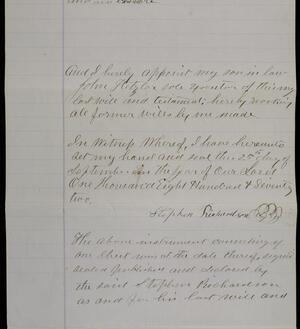 And I hereby appoint my son in law
John sole executor of this my
last will and testament: hereby revoking
all former wills by me made
In Witness Whereof, I have hereunto
set my hand and seal this 25th day of
September in the Year of Our Lord
One Thousand Eight Hundred & Seventy
two.
Stephen Richardson
The above instrument consisting of
one sheet was at the date thereof, signed
sealed published and declared by
the said Stephen Richardson
as and for his last will and